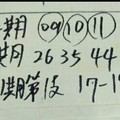 期 09 10 11
期 26 35 44
期第後 17-1